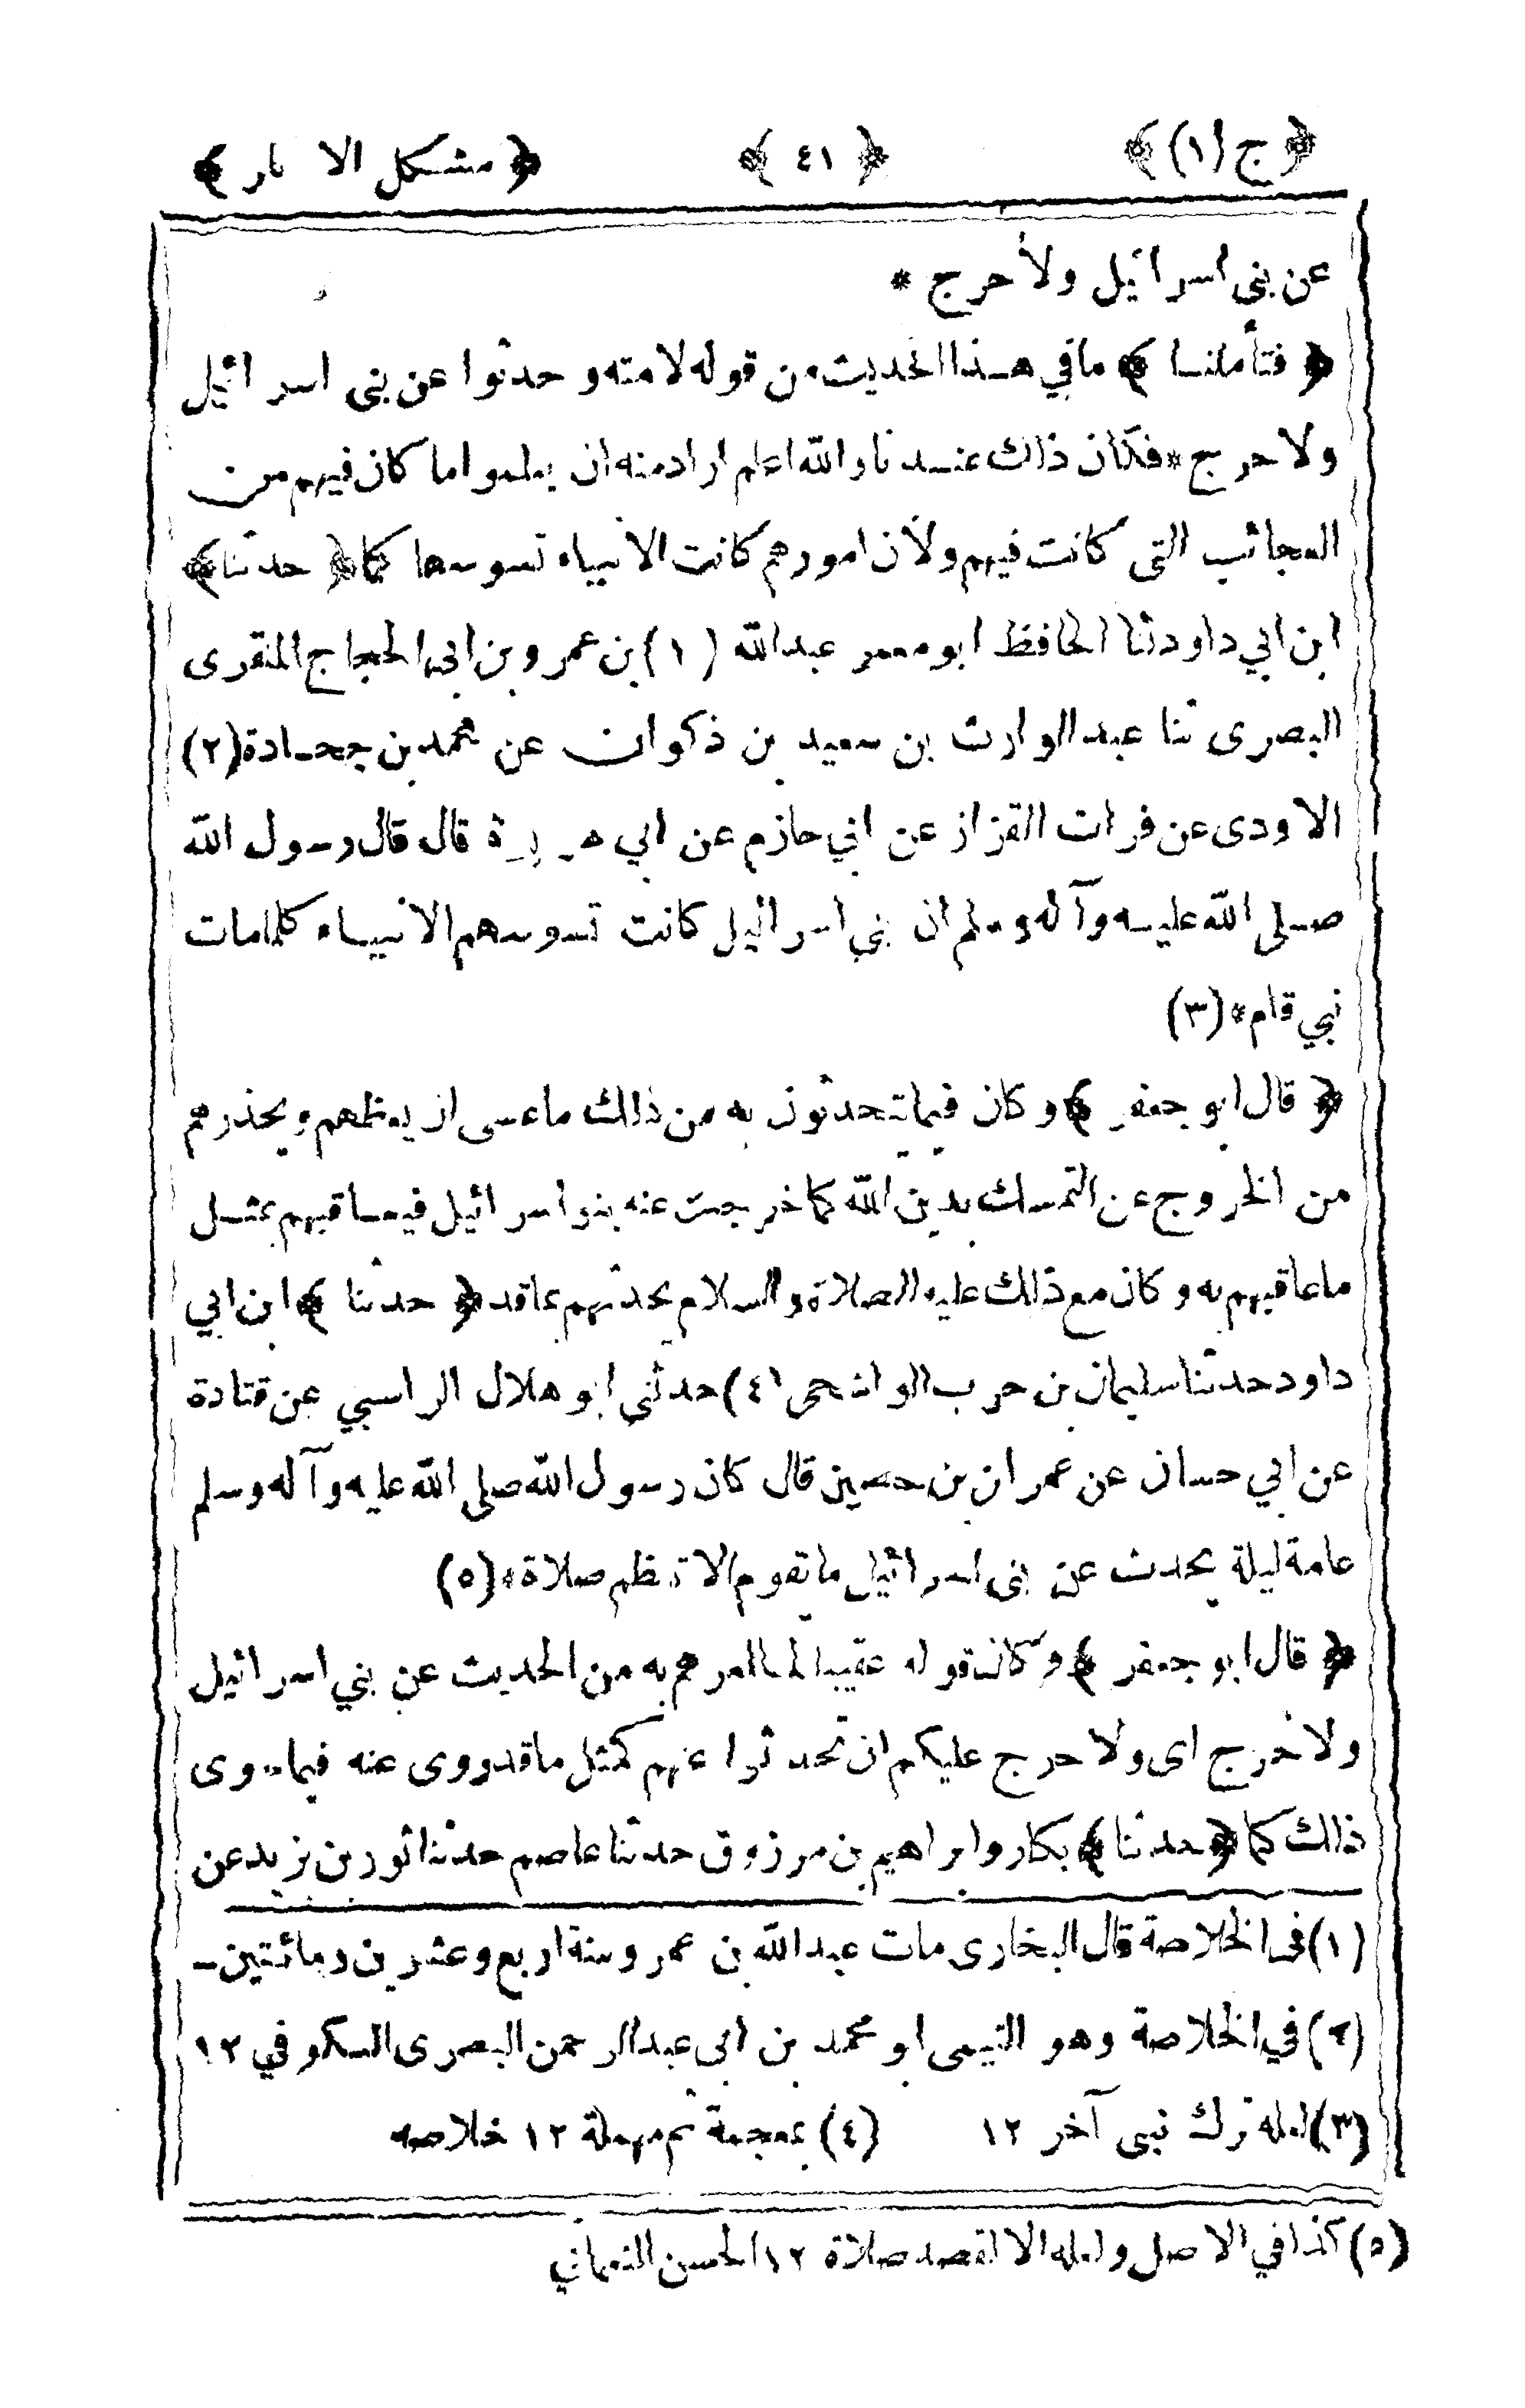 ﴿ ج (١) ﴾ ﴿ ٤١ ﴾ ﴿ مشكل الا ثار ﴾
عن بنى اسرائيل ولا حرج *
﴿ فتأملنا ﴾ ما في هذا الحديث من قوله لامته و حدثوا عن بنى اسرائيل
ولا حرج * فكان ذلك عندنا والله اعلم ارادمنه ان يعلموا ما كان فيهم من
العجائب التى كانت فيهم ولان امورهم كانت الانبياء تسوسها كما ﴿ حدثنا ﴾
ابن ابي داود ثنا الحافظ ابو معمر عبد الله (١) بن عمرو بن ابى الحجاج المنقرى
البصرى ثنا عبد الوارث بن سعيد بن ذكوان عن محمد بن جحادة (٢)
الاودى عن فرات القزاز عن ابي حازم عن ابي هريرة قال قال رسول الله
صلى الله عليه وآله وسلم ان بني اسرائيل كانت تسوسهم الانبياء كلما مات
نبي قام * (٣)
﴿ قال ابو جعفر ﴾ وكان فيما تحدثون به من ذلك ما عسى ان يعظهم ويحذرهم
من الخروج عن التمسك بدين الله كما خرجت عنه بنو اسرائيل فيعاقبهم بمثل
ما عاقبهم به وكان مع ذلك عليه الصلاة والسلام يحدثهم بما قد ﴿ حدثنا ﴾ ابن ابي
داود حدثنا سليمان بن حرب الواشحى (٤) حدثني ابو هلال الراسبي عن قتادة
عن ابي حسان عن عمران بن حصين قال كان رسول الله صلى الله عليه وآله وسلم
عامة ليلة يحدث عن بنى اسرائيل ما يقوم الا تعظم صلاة * (٥)
﴿ قال ابو جعفر ﴾ وكان قوله عقيبا لما امرهم به من الحديث عن بني اسرائيل
ولا حرج اى ولا حرج عليكم ان تحدثوا عنهم كمثل ما قد روى عنه فيما روى
ذلك كما ﴿ حدثنا ﴾ بكار وابراهيم بن مرزوق حدثنا عاصم حدثنا ثور بن يزيد عن
(١) فى الخلاصة قال البخارى مات عبد الله بن عمرو سنة اربع وعشرين ومائتين ـ
(٢) في الخلاصة وهو التيمى ابو محمد بن ابى عبد الرحمن البصرى السكوفي ١٢
(٣) لعله ترك نبى آخر ١٢ (٤) بمعجمة ثم مهملة ١٢ خلاصه
(٥) كذا في الاصل ولعله الا لقصد صلاة ١٢ الحسن النعماني